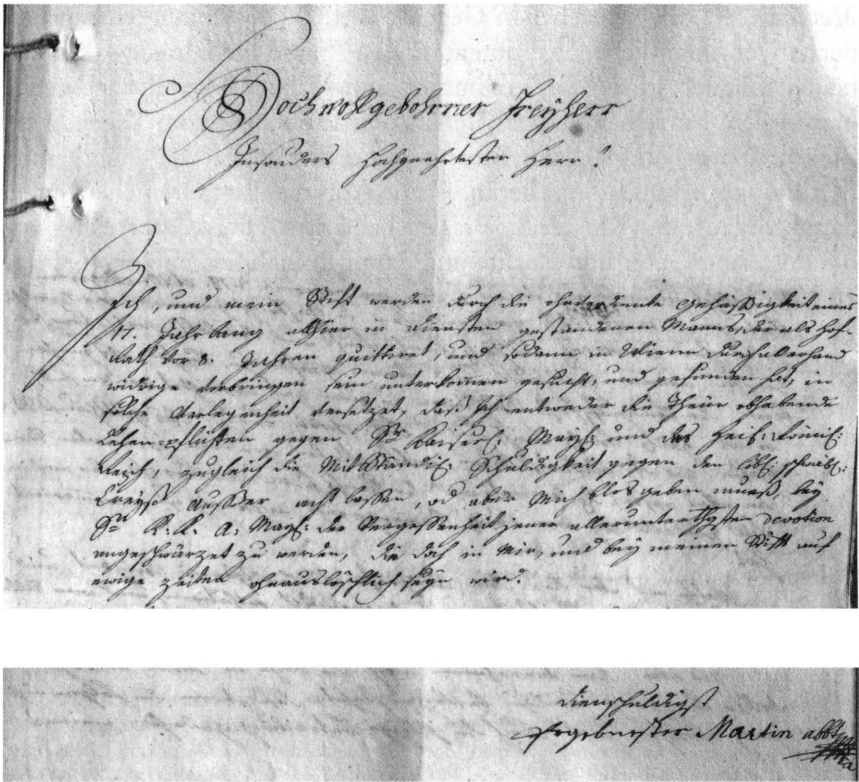 Hochwohlgebohrner Freyherr
Insonders Hochgeehrtester Herr!
Ich, und mein Stift werden durch die ohnverdiente Gehässigkeit eines
17. Jahr lang allhier in Diensten gestandenen Manns, der als Hof-
Rath vor 8. Jahren quittiret, und sodann in Wienn durch allerhand
widrige vorbringen sein unterkommen gesucht, und gefunden hat, in
solche Verlegenheit versetzet, daß ich entweder die theür obhabende
Lehen-pflichten gegen Sr Kaiserl: Mayst: und das heil: Römis:
Reich, zugleich die Mitständis: Schuldigkeit gegen den löbl: schwäb:
Creyß ausser acht lassen, od aber mich blos geben mueß, bey
Sr K. K. A. Mays: der Vergessenheit jener allerunterthgsten devotion
angeschwärzet zu werden, die doch in mir, und bey meinem Stift auf
ewige zeiten ohnauslöschlich seyn wird.
dienschuldigst
Ergebnester Martin abbt